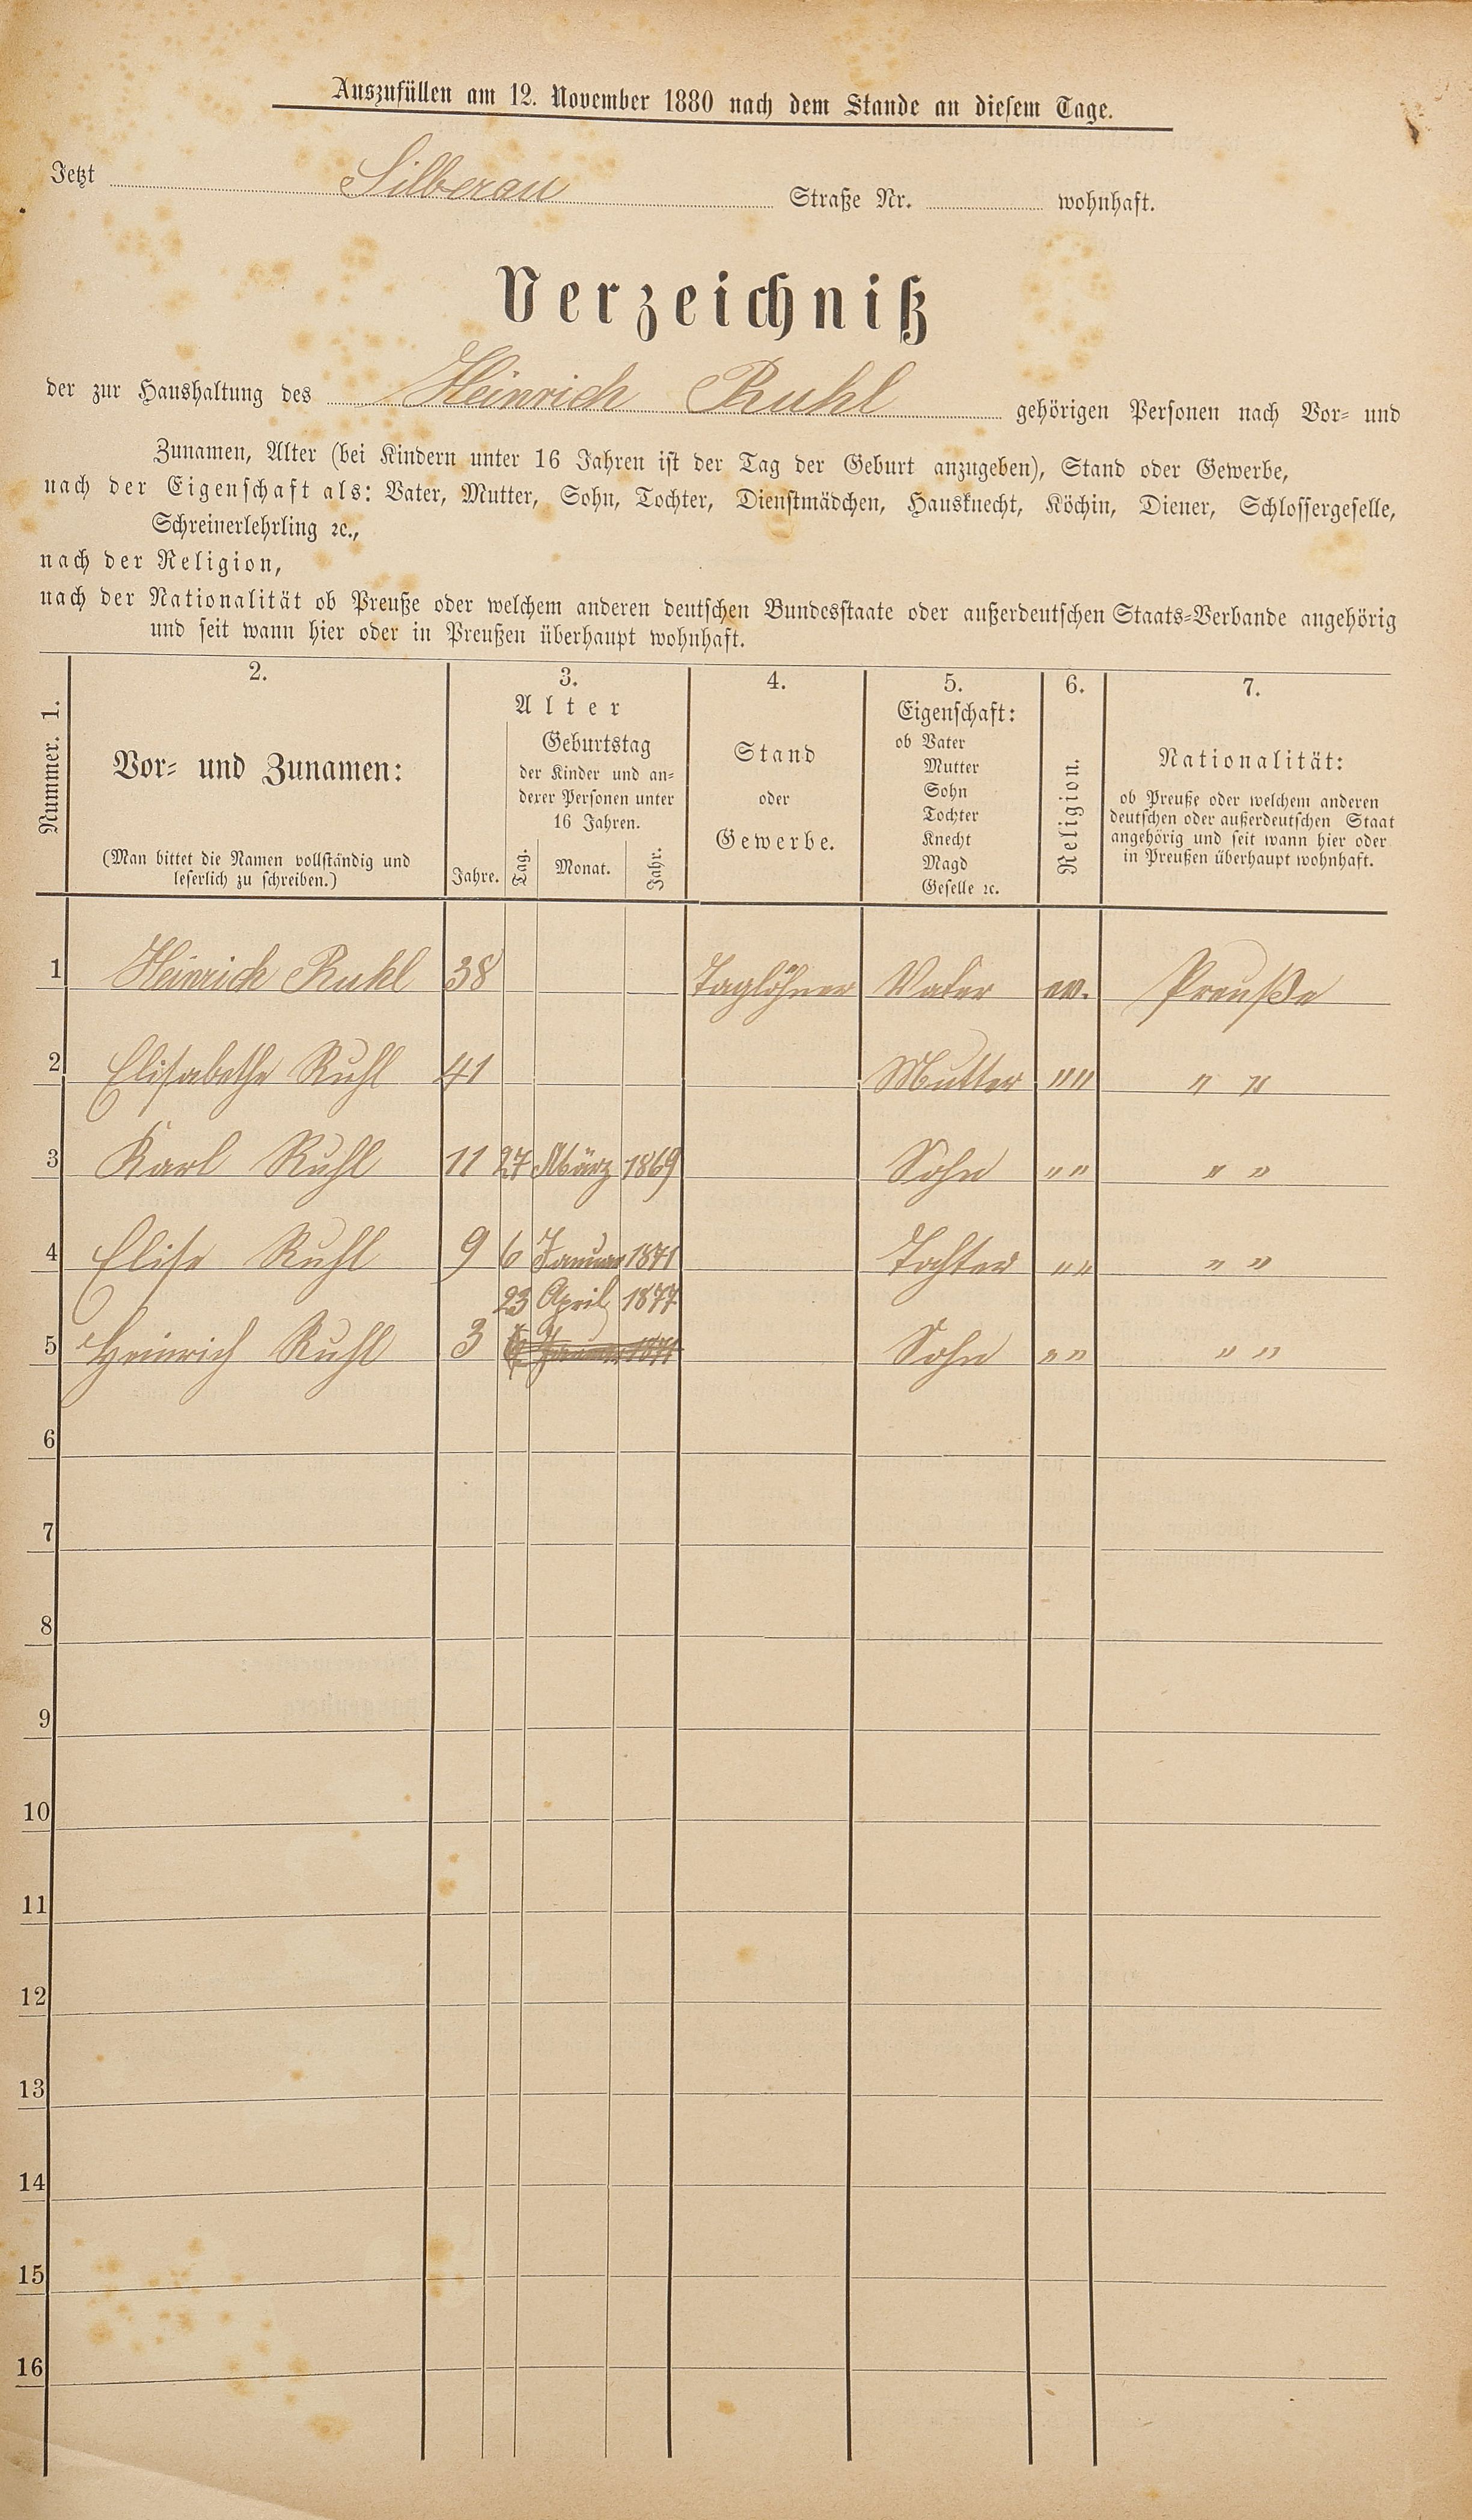 Auszufüllen am 12. November 1880 nach dem Stande an diesem Tage.
Jetzt Silberau Straße Nr. wohnhaft.
Verzeichniß
der zur Haushaltung des Heinrich Ruhl gehörigen Personen nach Vor- und
Zunamen, Alter (bei Kindern unter 16 Jahren ist der Tag der Geburt anzugeben), Stand oder Gewerbe,
nach der Eigenschaft als: Vater, Mutter, Sohn, Tochter, Dienstmädchen, Hausknecht, Köchin, Diener, Schlossergeselle,
Schreinerlehrling ꝛc.,
nach der Religion,
nach der Nationalität ob Preuße oder welchem anderen deutschen Bundesstaate oder außerdeutschen Staats-Verbande angehörig
und seit wann hier oder in Preußen überhaupt wohnhaft.
Nummer. 1.
2.
Vor- und Zunamen:
(Man bittet die Namen vollständig und
leserlich zu schreiben.)
3.
Alter
Jahre.
Geburtstag
der Kinder und an-
derer Personen unter
16 Jahren.
Tag. Monat. Jahr.
4.
Stand
oder
Gewerbe.
5.
Eigenschaft:
ob Vater
Mutter
Sohn
Tochter
Knecht
Magd
Geselle ꝛc.
6.
Religion.
7.
Nationalität:
ob Preuße oder welchem anderen
deutschen oder außerdeutschen Staat
angehörig und seit wann hier oder
in Preußen überhaupt wohnhaft.
1 Heinrich Ruhl 38 Taglöhner Vater ev. Preuße
2 Elisabethe Ruhl 41 Mutter "" " "
3 Karl Ruhl 11 27 März 1869 Sohn "" " "
4 Elise Ruhl 9 6 Januar 1871 Tochter "" " "
23 April 1877
5 Heinrich Ruhl 3 6 Januar 1871 Sohn "" " "
6
7
8
9
10
11
12
13
14
15
16